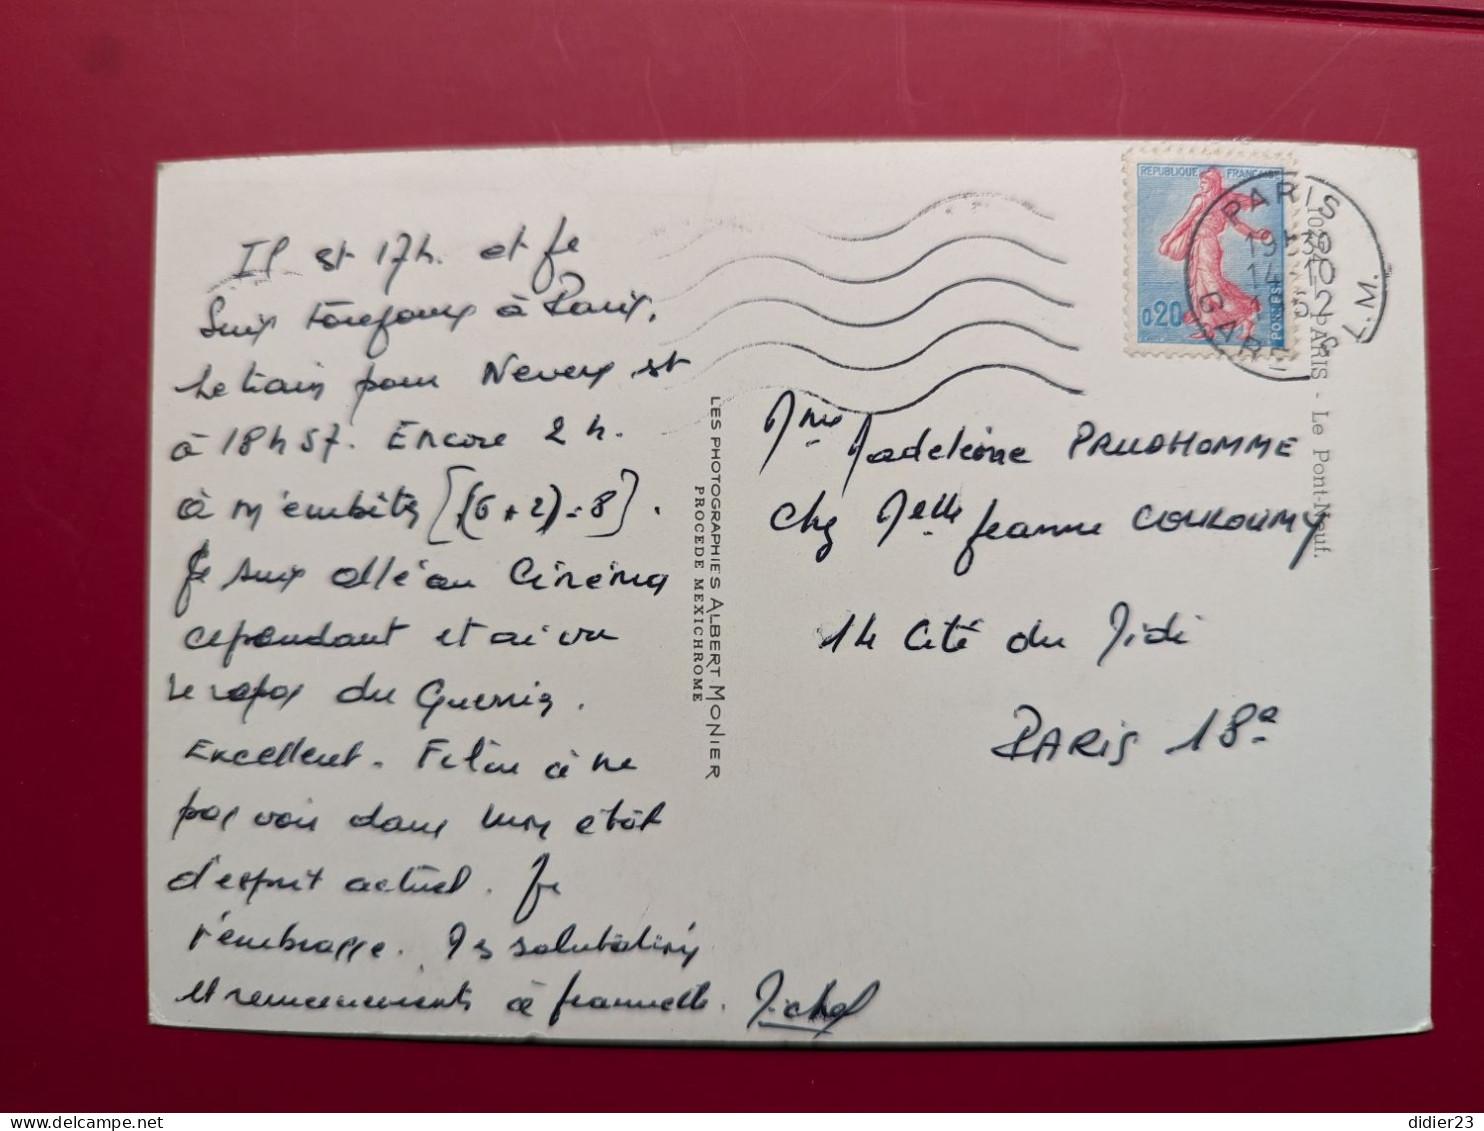 Il est 17h. et je
suis toujours à Paris.
Le train pour Nevers est
à 18h57. Encore 2 h.
à m'embêter [(6+2)=8].
Je suis allé au Cinéma
cependant et ai vu
le repos du Guerrier.
Excellent. Film à ne
pas voir dans mon état
d'esprit actuel. Je
t'embrasse. Mes salutations
et remerciements à Jeannette. Michel
LES PHOTOGRAPHIES ALBERT MONIER
PROCEDE MEXICHROME
REPUBLIQUE FRANÇAISE
0,20
POSTES
PARIS
GARE
L.M.
PARIS - Le Pont-Neuf.
Mme Madeleine PRUDHOMME
chez Melle Jeanne COULOUMY
14 Cité du Midi
PARIS 18e
didier23